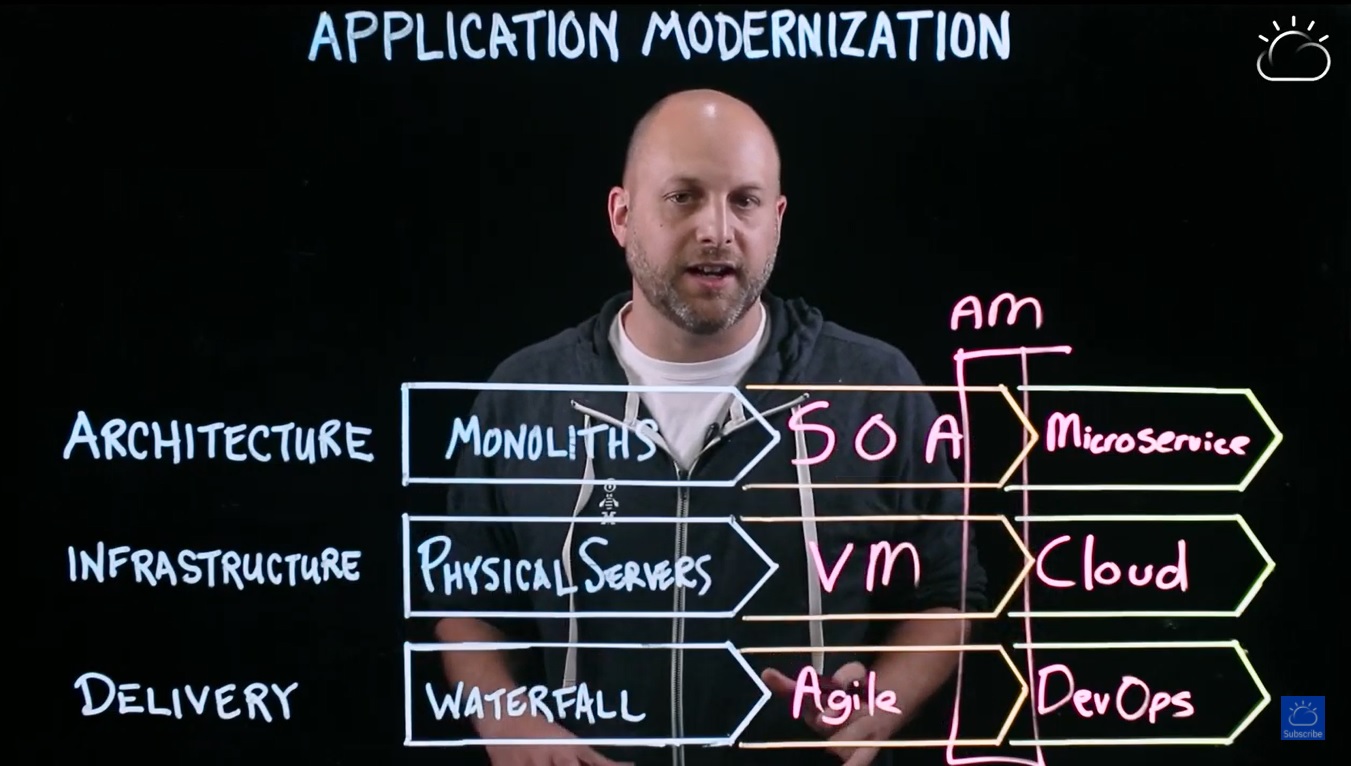 APPLICATION MODERNIZATION
AM
ARCHITECTURE MONOLITHS SOA Microservice
INFRASTRUCTURE PHYSICAL SERVERS VM Cloud
DELIVERY WATERFALL Agile DevOps
Subscribe